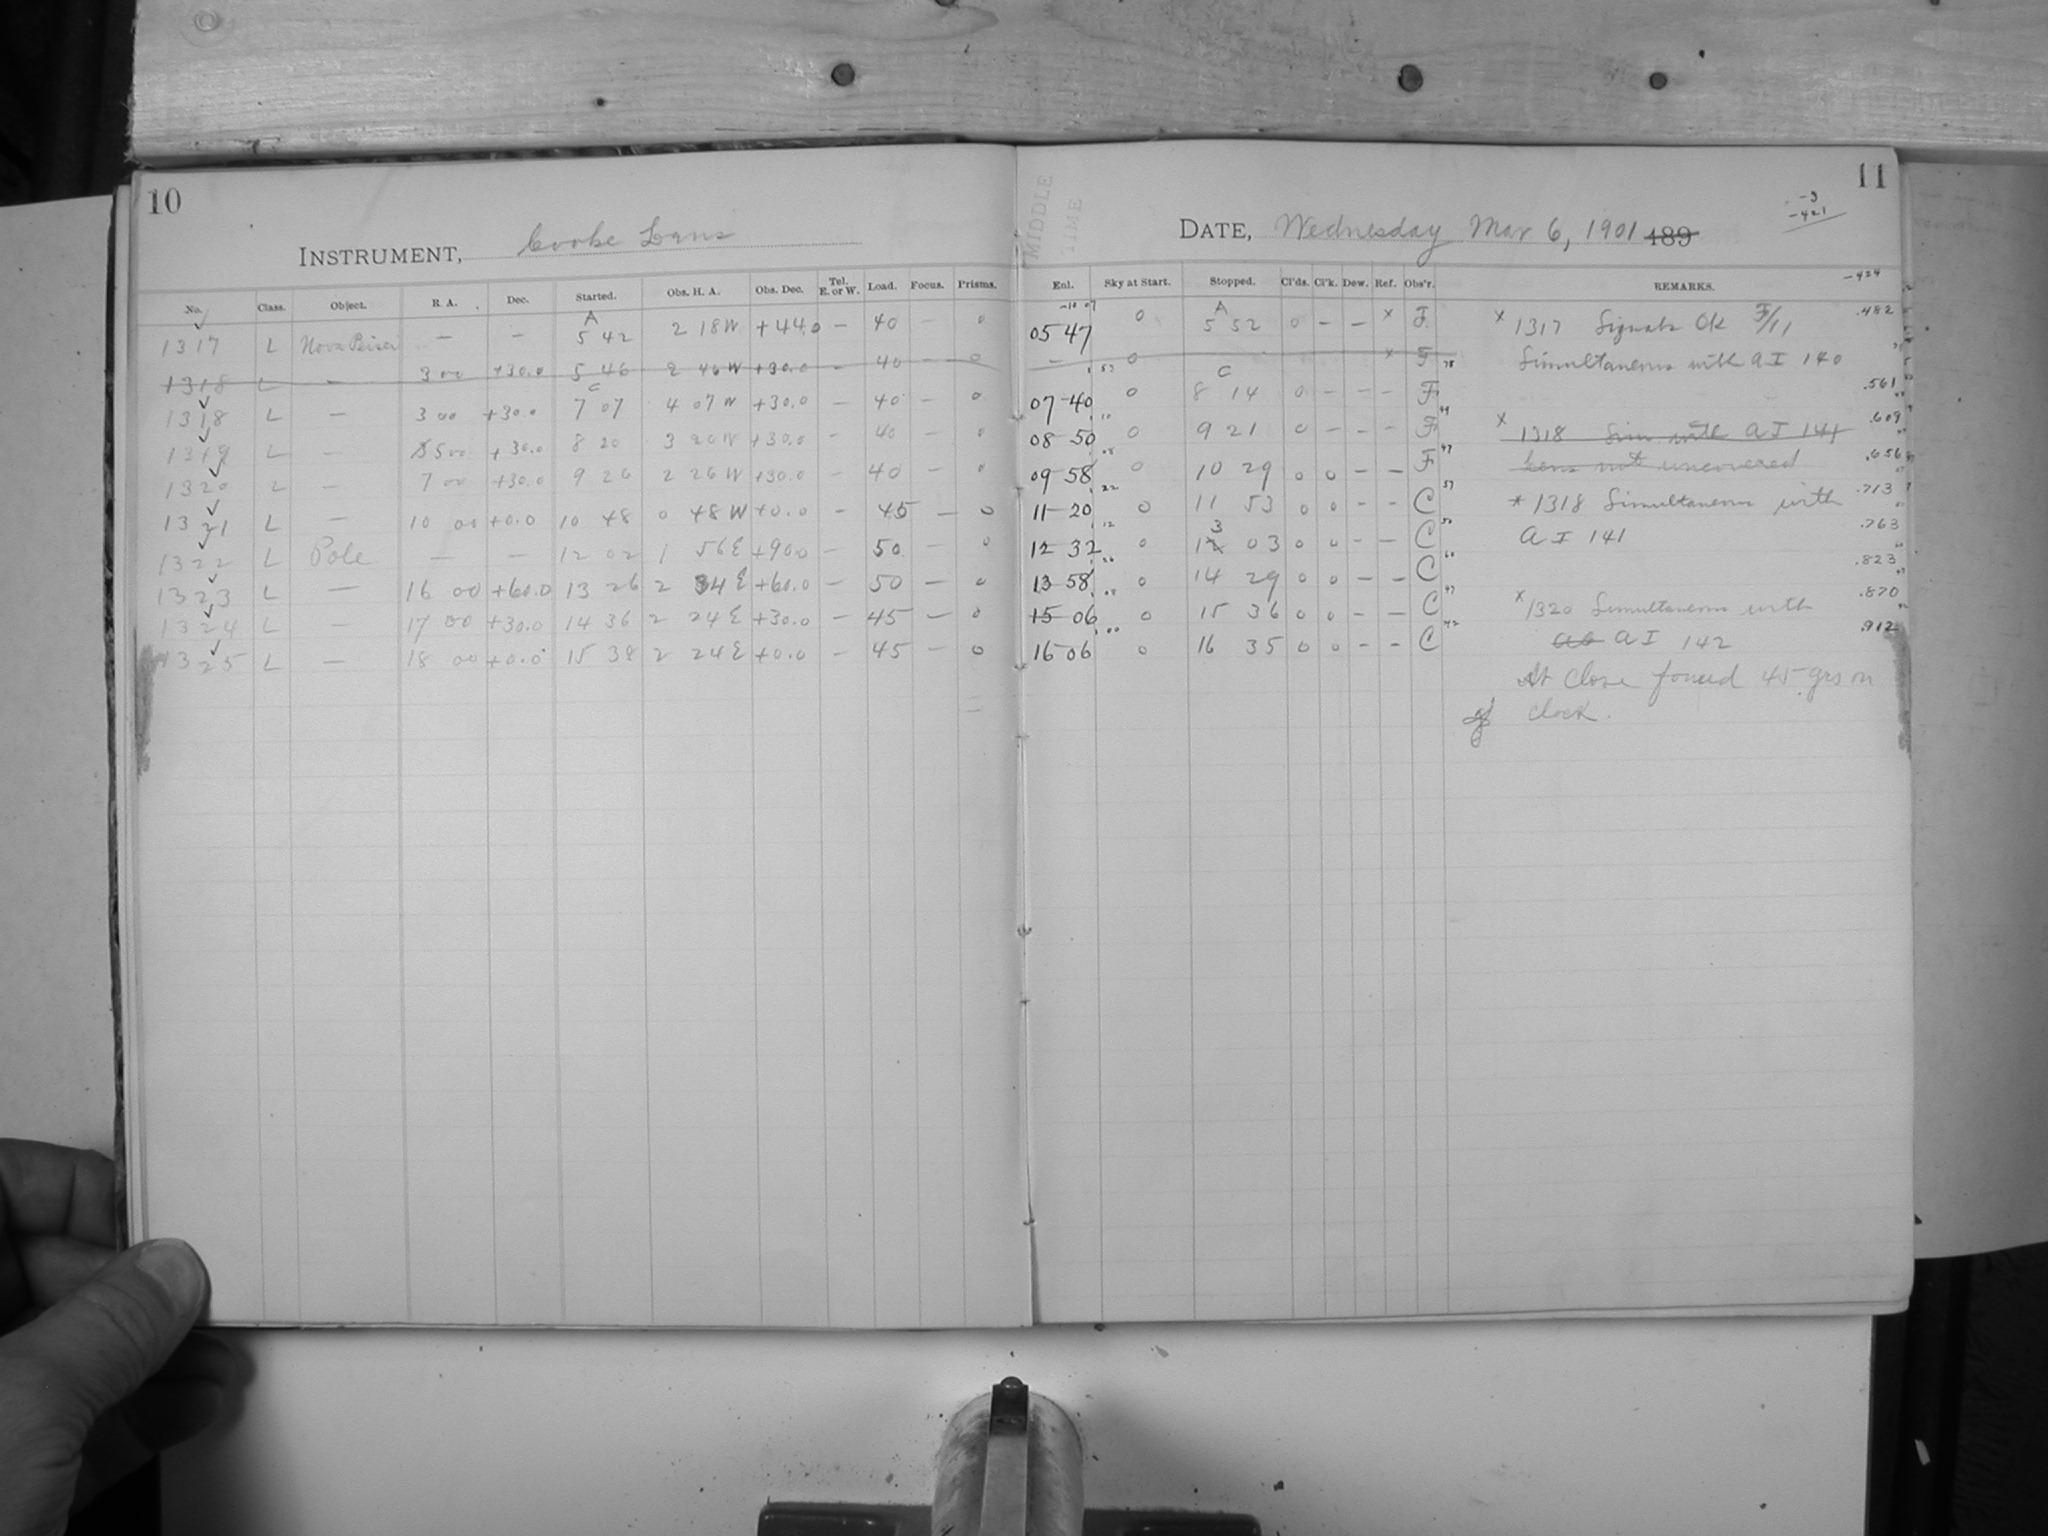 10
INSTRUMENT, Cooke Lens
No. Class. Object. R. A. Dec. Started. Obs. H. A. Obs. Dec. Tel. E. or W. Load. Focus. Prisms.
1317 L Nova Persei — — A 5 42 2 18 W +44.0 — 40 — 0
1318 L — 3 00 +30.0 5 46 2 46 W +30.0 — 40 — 0
1318 L — 3 00 +30.0 C 7 07 4 07 W +30.0 — 40 — 0
1319 L — 5 00 +30.0 8 20 3 20 W +30.0 — 40 — 0
1320 L — 7 00 +30.0 9 26 2 26 W +30.0 — 40 — 0
1321 L — 10 00 +0.0 10 48 0 48 W +0.0 — 45 — 0
1322 L Pole — — 12 02 1 56 E +90.0 — 50 — 0
1323 L — 16 00 +60.0 13 26 2 34 E +60.0 — 50 — 0
1324 L — 17 00 +30.0 14 36 2 24 E +30.0 — 45 — 0
1325 L — 18 00 +0.0 15 38 2 24 E +0.0 — 45 — 0
11
MIDDLE TIME
-3
-421
DATE, Wednesday Mar 6, 1901 189
-424
Enl. Sky at Start. Stopped. Cl'ds. Cl'k. Dew. Ref. Obs'r. REMARKS.
-10 07
05 47 0 A 5 52 0 — — x F
— 0 x F
07 40 0 C 8 14 0 — — — F
08 50 0 9 21 0 — — — F
09 58 0 10 29 0 0 — — F
11 20 0 11 53 0 0 — — C
12 32 0 13 03 0 0 — — C
13 58 0 14 29 0 0 — — C
15 06 0 15 36 0 0 — — C
16 06 0 16 35 0 0 — — C
x 1317 Signals OK F/11 .482
Simultaneous with A I 140
.561
x 1318 Sim with A I 141 .609
Lens not uncovered .656
* 1318 Simultaneous with .713
A I 141 .763
.823
x 1320 Simultaneous with .870
A I 142 .912
At Close found 45 grs on
clock.